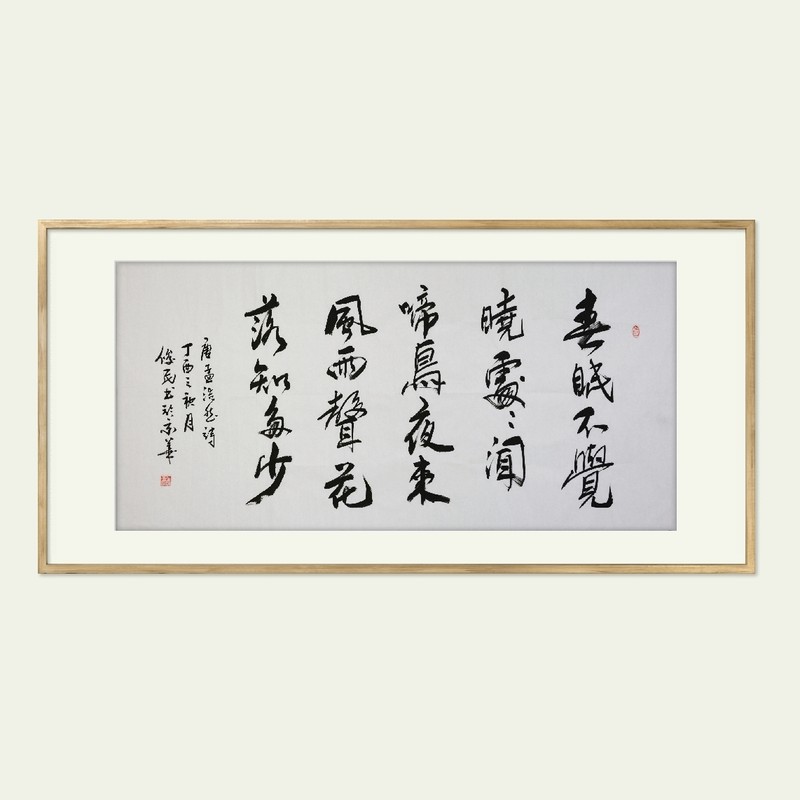 春眠不覺
曉處〻聞
啼鳥夜来
風雨聲花
落知多少
唐孟浩然詩
丁酉之秋月
俊民书於京華